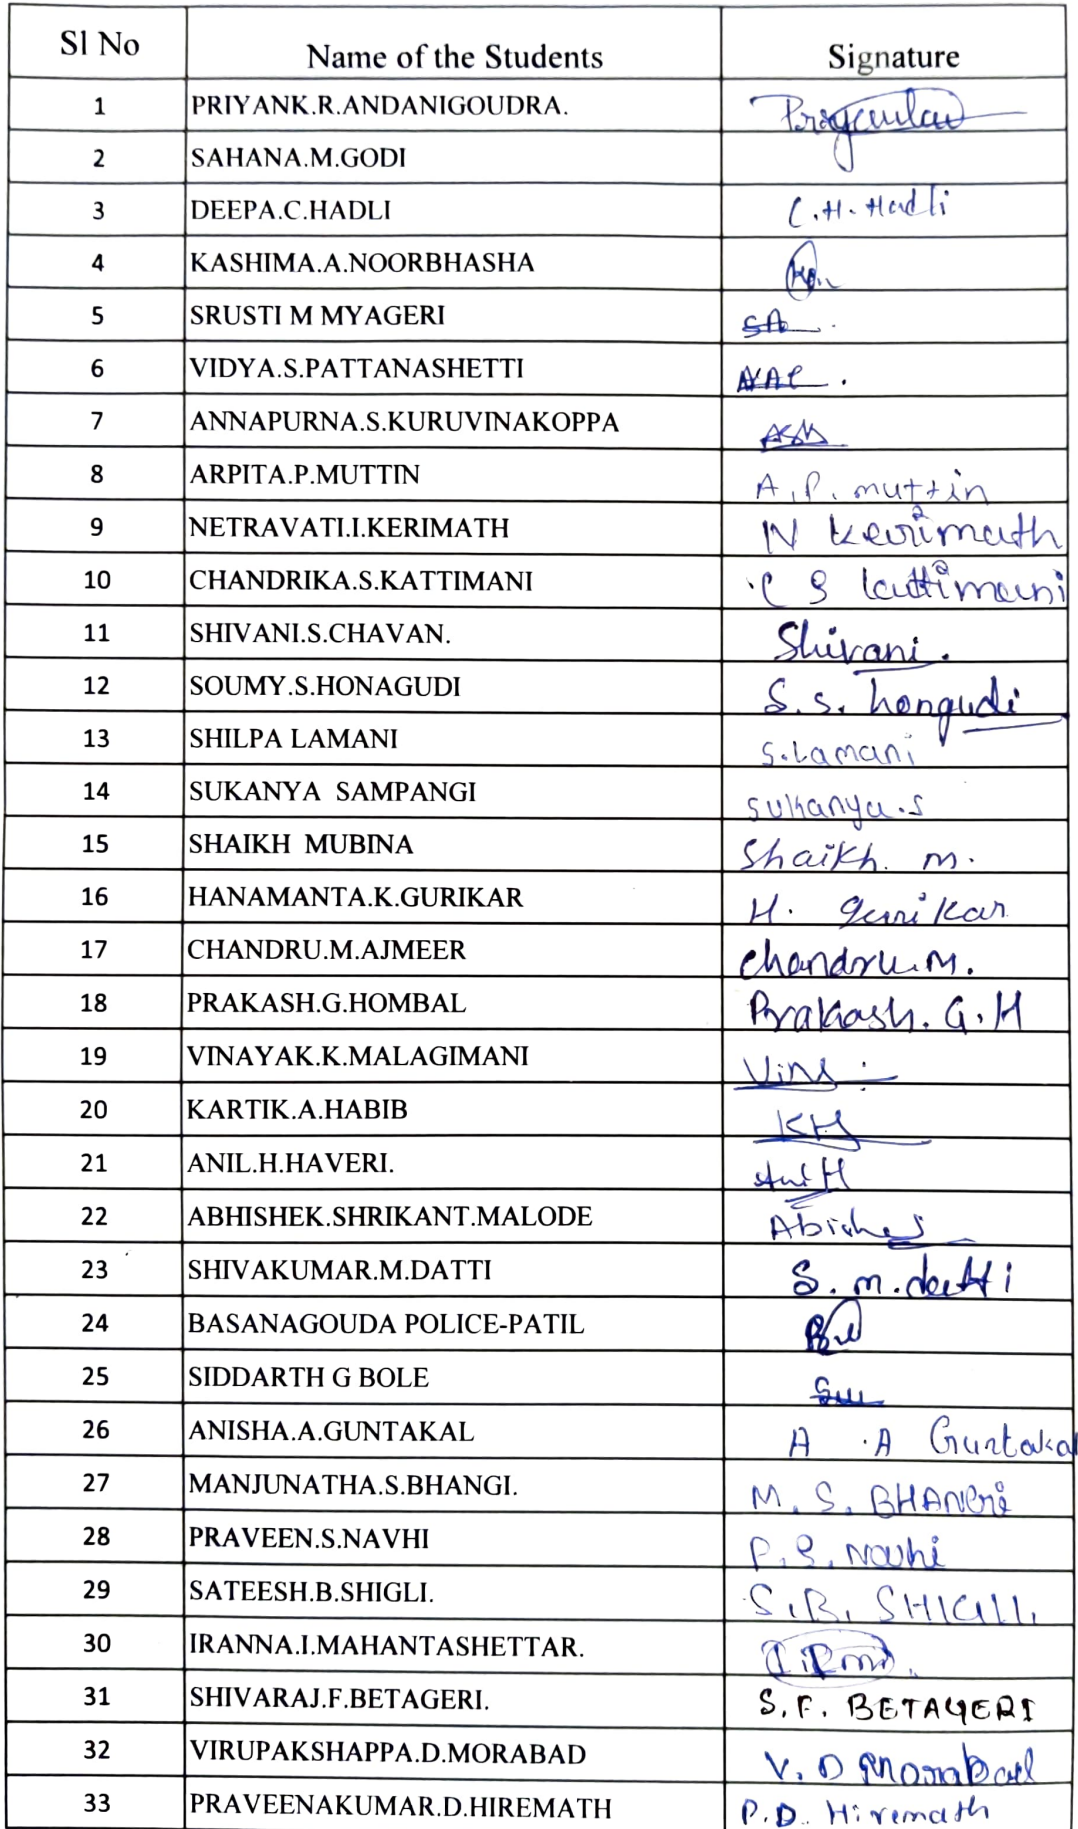 Sl No Name of the Students Signature
1 PRIYANK.R.ANDANIGOUDRA.
2 SAHANA.M.GODI
3 DEEPA.C.HADLI C.H.Hadli
4 KASHIMA.A.NOORBHASHA
5 SRUSTI M MYAGERI
6 VIDYA.S.PATTANASHETTI
7 ANNAPURNA.S.KURUVINAKOPPA
8 ARPITA.P.MUTTIN A.P.muttin
9 NETRAVATI.I.KERIMATH N kerimath
10 CHANDRIKA.S.KATTIMANI C S kattimani
11 SHIVANI.S.CHAVAN. Shivani.
12 SOUMY.S.HONAGUDI S.s. hongudi
13 SHILPA LAMANI S.Lamani
14 SUKANYA SAMPANGI sukanya.s
15 SHAIKH MUBINA Shaikh. m.
16 HANAMANTA.K.GURIKAR H. gurikar
17 CHANDRU.M.AJMEER chandru.M.
18 PRAKASH.G.HOMBAL Prakash.G.H
19 VINAYAK.K.MALAGIMANI
20 KARTIK.A.HABIB KH
21 ANIL.H.HAVERI.
22 ABHISHEK.SHRIKANT.MALODE
23 SHIVAKUMAR.M.DATTI S.m.datti
24 BASANAGOUDA POLICE-PATIL
25 SIDDARTH G BOLE
26 ANISHA.A.GUNTAKAL A .A Guntakal
27 MANJUNATHA.S.BHANGI. M.S.BHANGi
28 PRAVEEN.S.NAVHI P.S.Navhi
29 SATEESH.B.SHIGLI. S.B. SHIGLI.
30 IRANNA.I.MAHANTASHETTAR.
31 SHIVARAJ.F.BETAGERI. S.F. BETAGERI
32 VIRUPAKSHAPPA.D.MORABAD V.D Morabad
33 PRAVEENAKUMAR.D.HIREMATH P.D. Hiremath